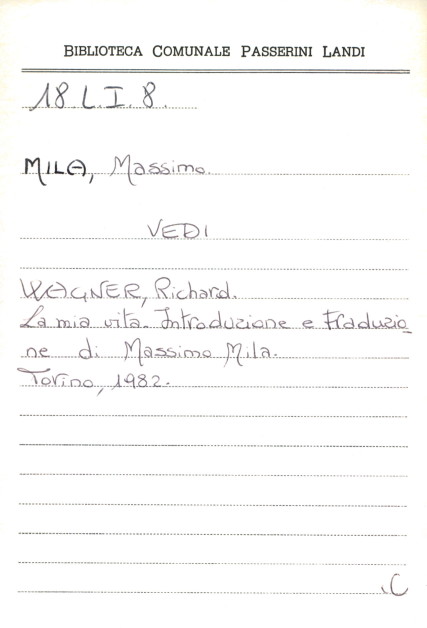 BIBLIOTECA COMUNALE PASSERINI LANDI
18.L.I.8.
MILA, Massimo.
VEDI
WAGNER, Richard.
La mia vita. Introduzione e traduzio
ne di Massimo Mila.
Torino, 1982.
.C